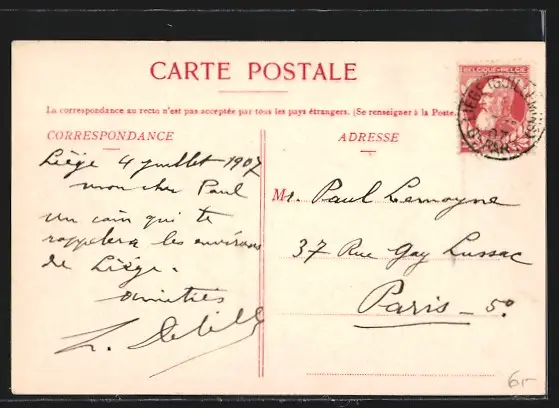 CARTE POSTALE
BELGIQUE-BELGIE
La correspondance au recto n'est pas acceptée par tous les pays étrangers. (Se renseigner à la Poste
CORRESPONDANCE
ADRESSE
Liège 4 juillet 1907
mon cher Paul
un coin qui te
rappelera les environs
de Liège.
amitiés
Mr. Paul Lemoyne
37 Rue Gay Lussac
Paris - 5º
6-